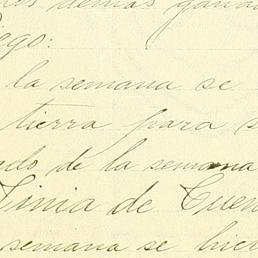 los demas gana
iego:
la semana se
tierra para s
ado de la semana
Tinia de Cuen
semana se hier